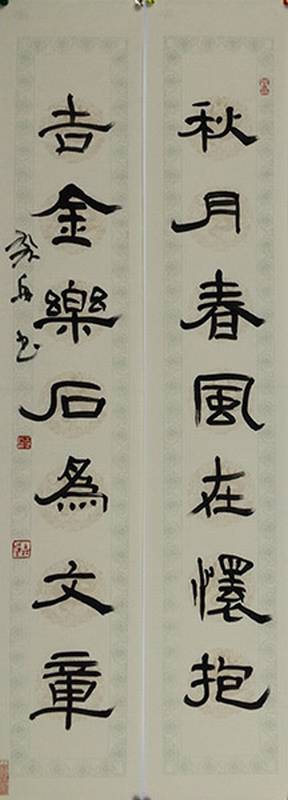 秋月春風在懷抱
吉金樂石為文章